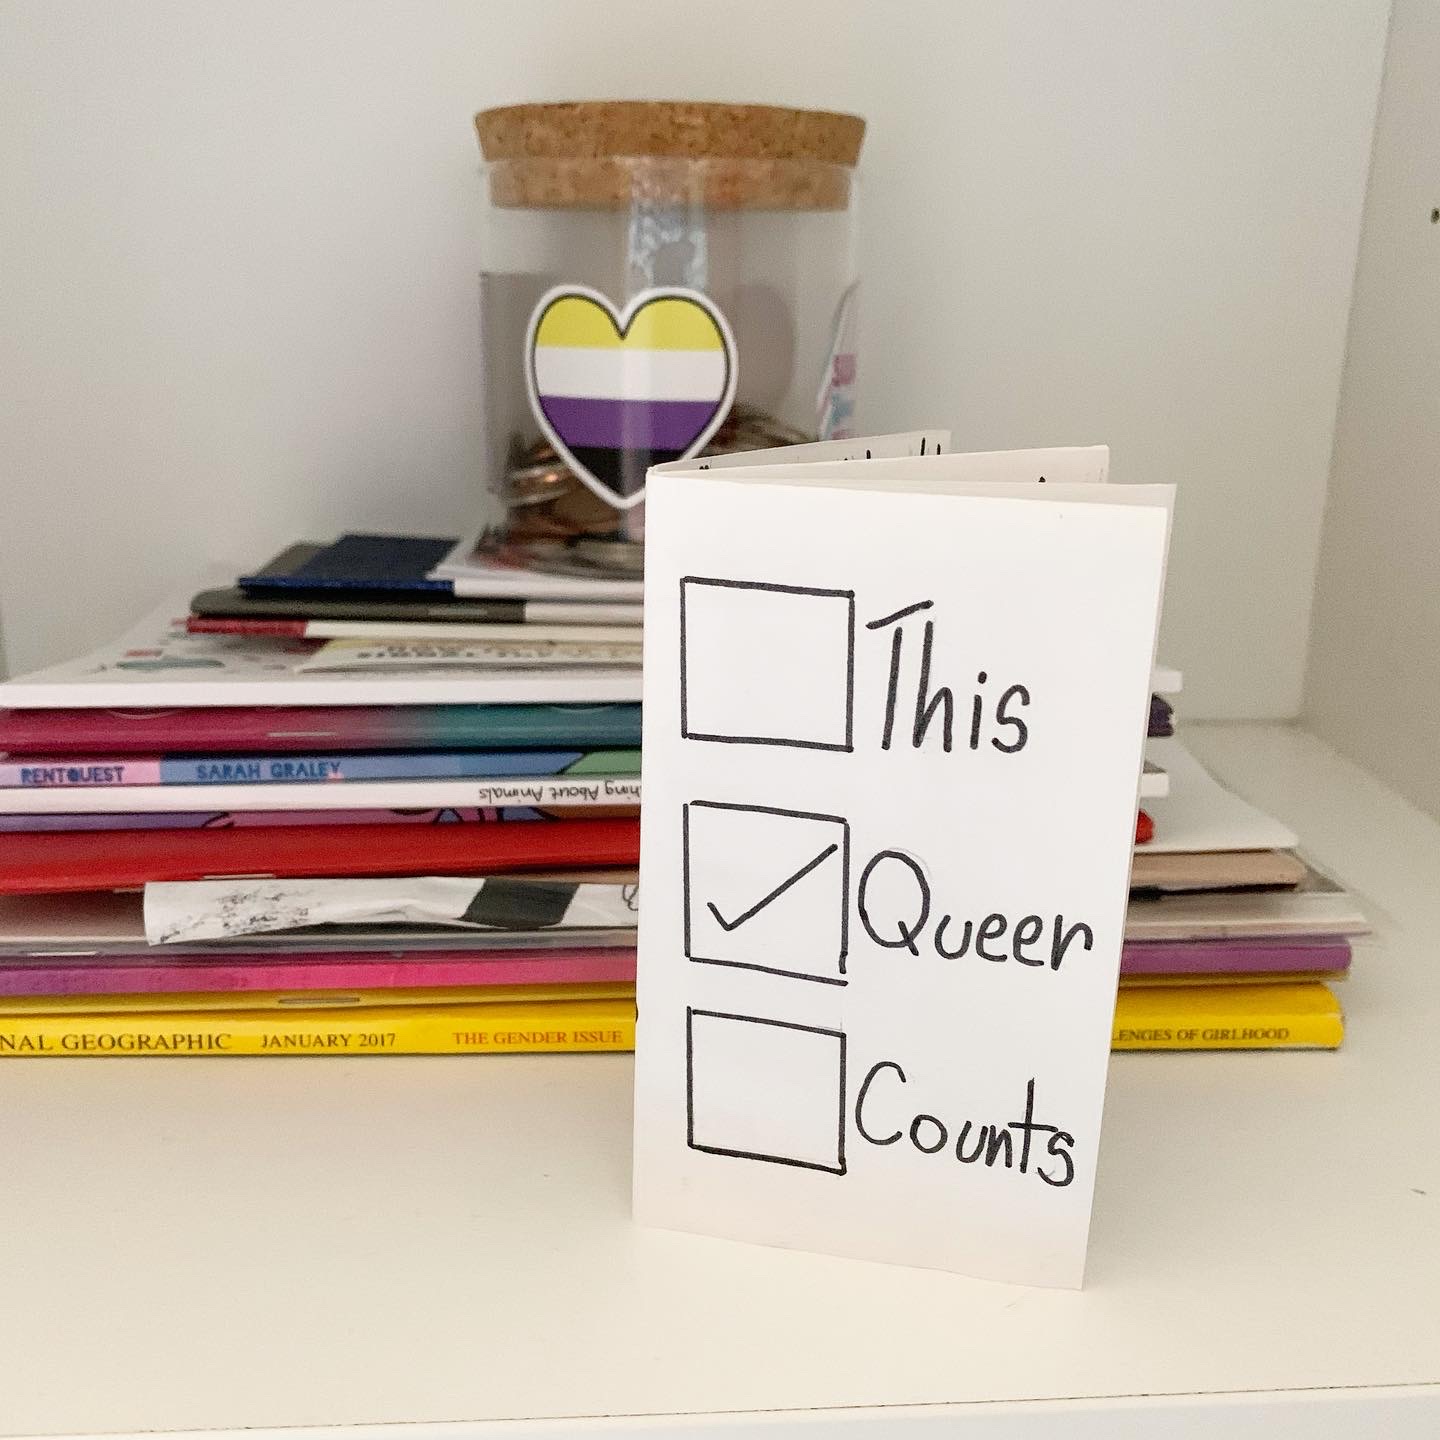 This
Queer
Counts
RENTQUEST SARAH GRALEY
hing About Animals
NAL GEOGRAPHIC JANUARY 2017 THE GENDER ISSUE
LENGES OF GIRLHOOD